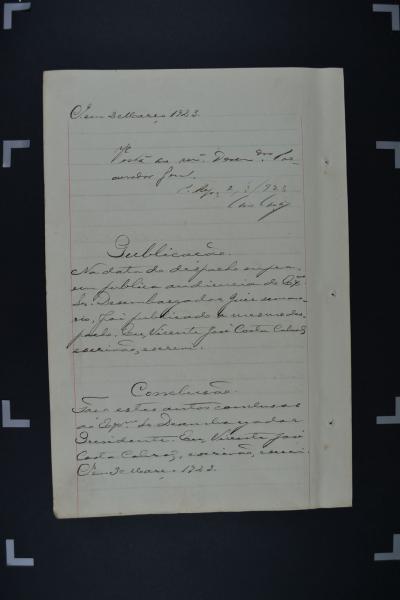 C. em 2 Março 1923.
Vista ao
2, 3/923
Publicação.
Na data do despacho supra,
em publica audiencia do Exmº
Sr. Desembargador Juiz sema-
rio, foi publicado o mesmo des-
pacho. Eu, Vicente José Costa Cabral,
escrivão, escrevi.
Conclusão.
Faço estes autos conclusos
ao Exmº Sr. Desembargador
Presidente. Eu, Vicente José
Costa Cabral, escrivão, escrevi.
C. em 3 Março 1923.